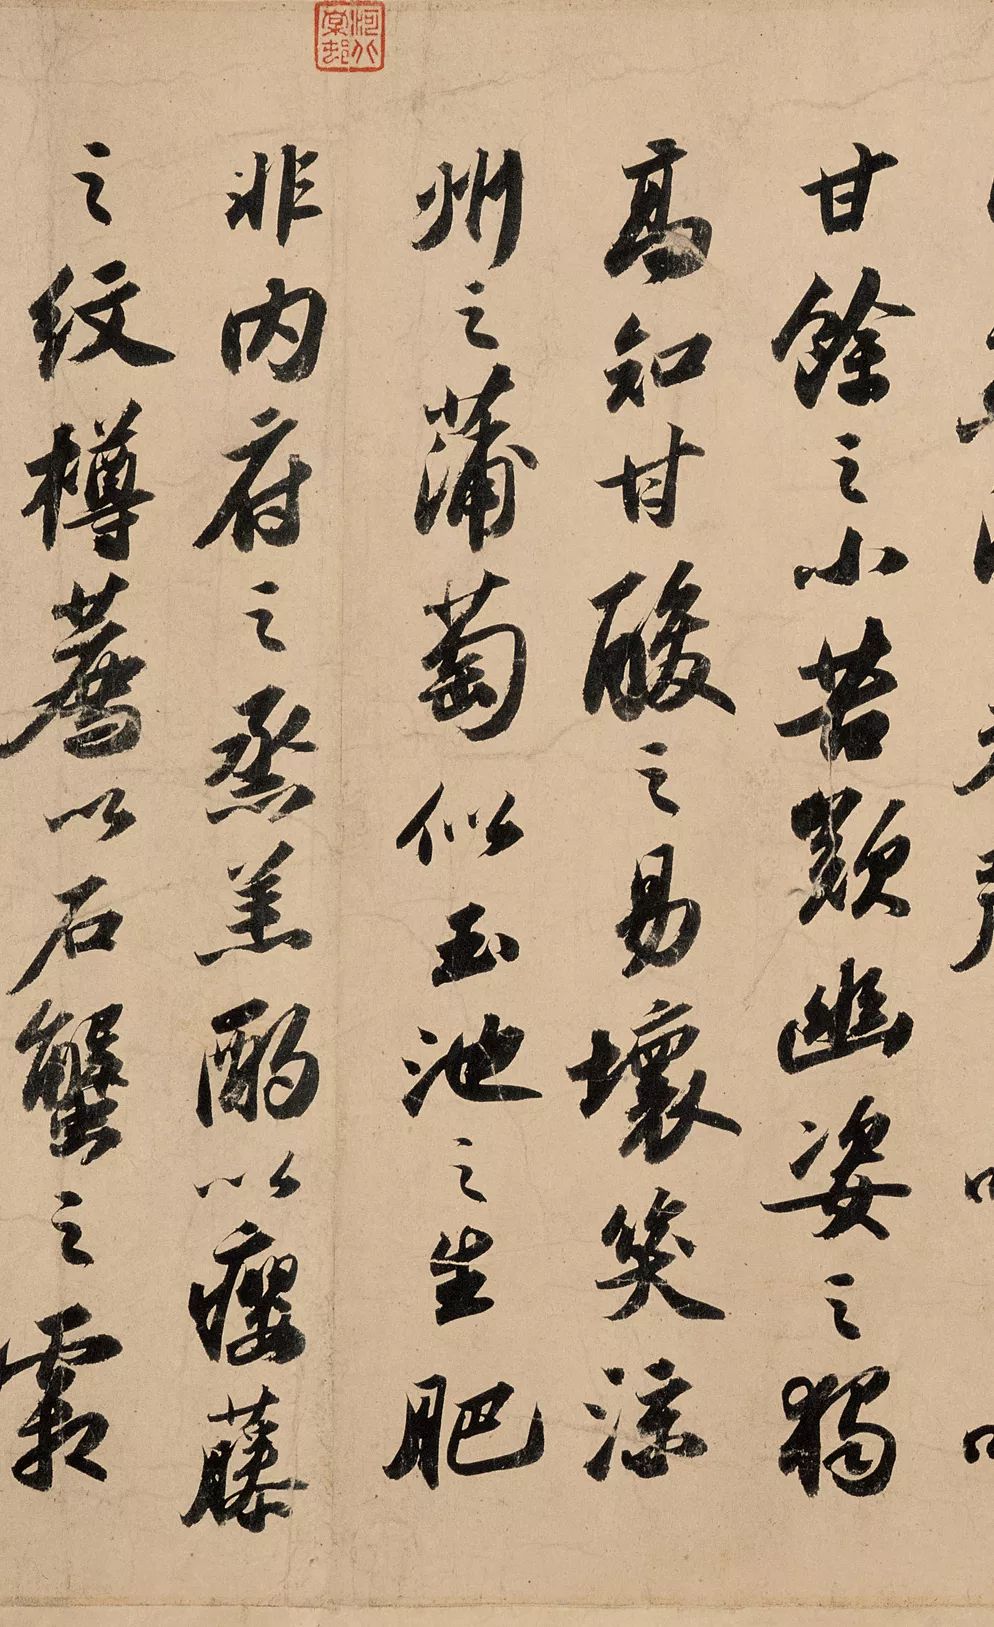 甘餘之小苦歎幽姿之獨
高知甘酸之易壞笑涼
州之蒲萄似玉池之生肥
非内府之烝羔酌以癭藤
之紋樽薦以石蟹之霜
河北棠邨